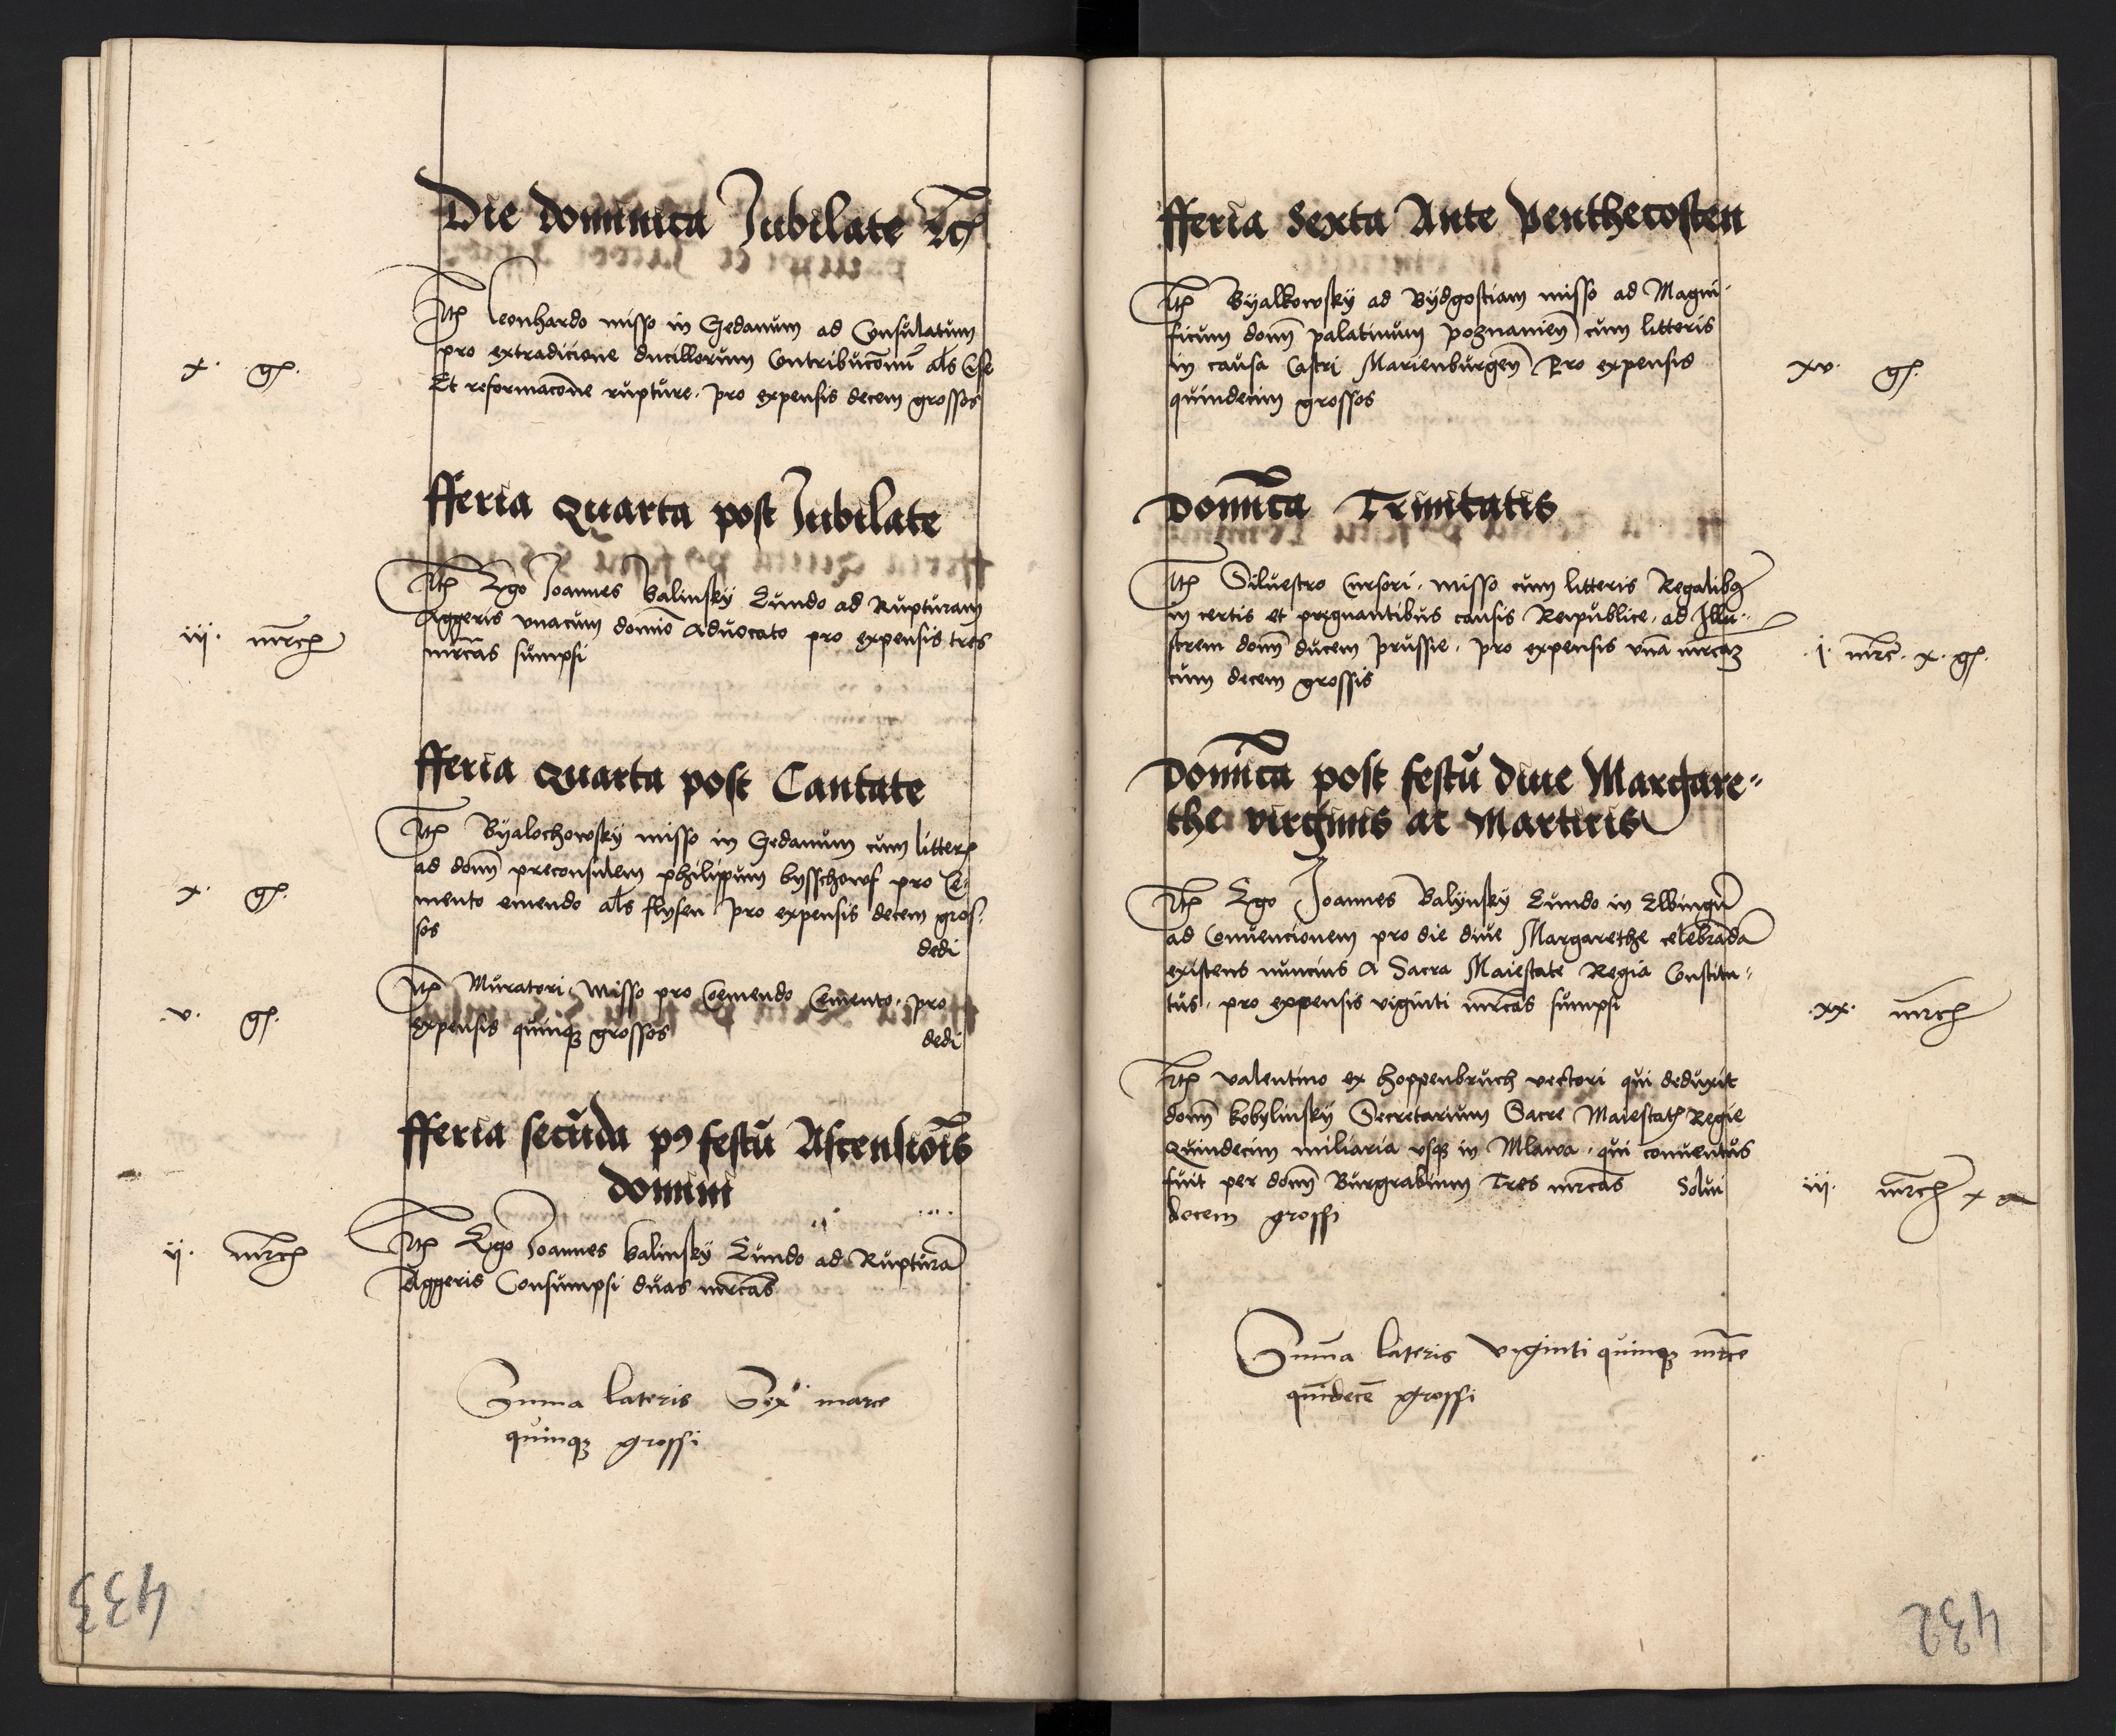 Die dominica Jubilate Etc
Itē Leonhardo misso in Gedanum ad Consulatum
pro extradicione ducillorum Contribucōnū als Cise
x. gſ.
Et reformacōne rupture. pro expensis decem grossos
fferia Quarta post Jubilate
Itē Ego Joannes balinskÿ Eundo ad Rupturam
Aggeris vnacum domīo Aduocato pro expensis tres
iij. mrcē
mrcas sumpsi
fferia Quarta post Cantate
Itē Bÿalochowskÿ misso in Gedanum cum litterꝭ
ad donm preconsulem philippum bysschowf pro Ce-
x. gſ.
mento emendo als flysen pro expensis decem gros-
sos
dedi
Itē Muratori. misso pro Coemendo Cemento. pro
v. gſ.
expensis quinqꝫ grossos
dedi
fferia secūda pꝰ festū Ascensiōis
domini
ij. mrcē
Itē Ego Joannes balinskÿ Eundo ad Rupturā
Aggeris Consumpsi duas mrcas
Suma lateris Sex marce
quinqꝫ grossi
433
fferia Sexta Ante Penthecosten
Itē Bÿalkowskÿ ad Bÿdgostiam misso ad Magni-
ficum donm palatinum poznanien cum litteris
in causa Castri Marienburgen Pro expensis
xv. gſ.
quindecim grossos
Domīca Trinitatis
Itē Siluestro Cursori. misso cum litteris Regalibꝫ
in certis et pregnantibus causis Reipublice. ad Illu-
strem donm ducem prussie. pro expensis vnā mrcaꝫ
i. mrc. x. gſ.
cum decem grossis
Domīca post festū diue Margare-
the virginis ac Martiris
Itē Ego Joannes Balÿnskÿ Eundo in Elbingū
ad Conuencionem pro die diue Margarethe celebrāda
existens nuncius A Sacra Maiestate Regia Constitu-
tus. pro expensis viginti mrcas sumpsi
.xx. mrcē
Itē valentino ex hoppenbruch vectori qui deduxit
donm kobylinskÿ Secretarium Sacre Maiestatꝭ Regie
Quindecim miliaria vsqꝫ in Mlawa. qui conuentus
fuit per donm Burgrabium Tres mrcas Solui
iij. mrcē x g
decem grossi
Sum̄a lateris viginti quinqꝫ mrce
quīdecē grossi
432